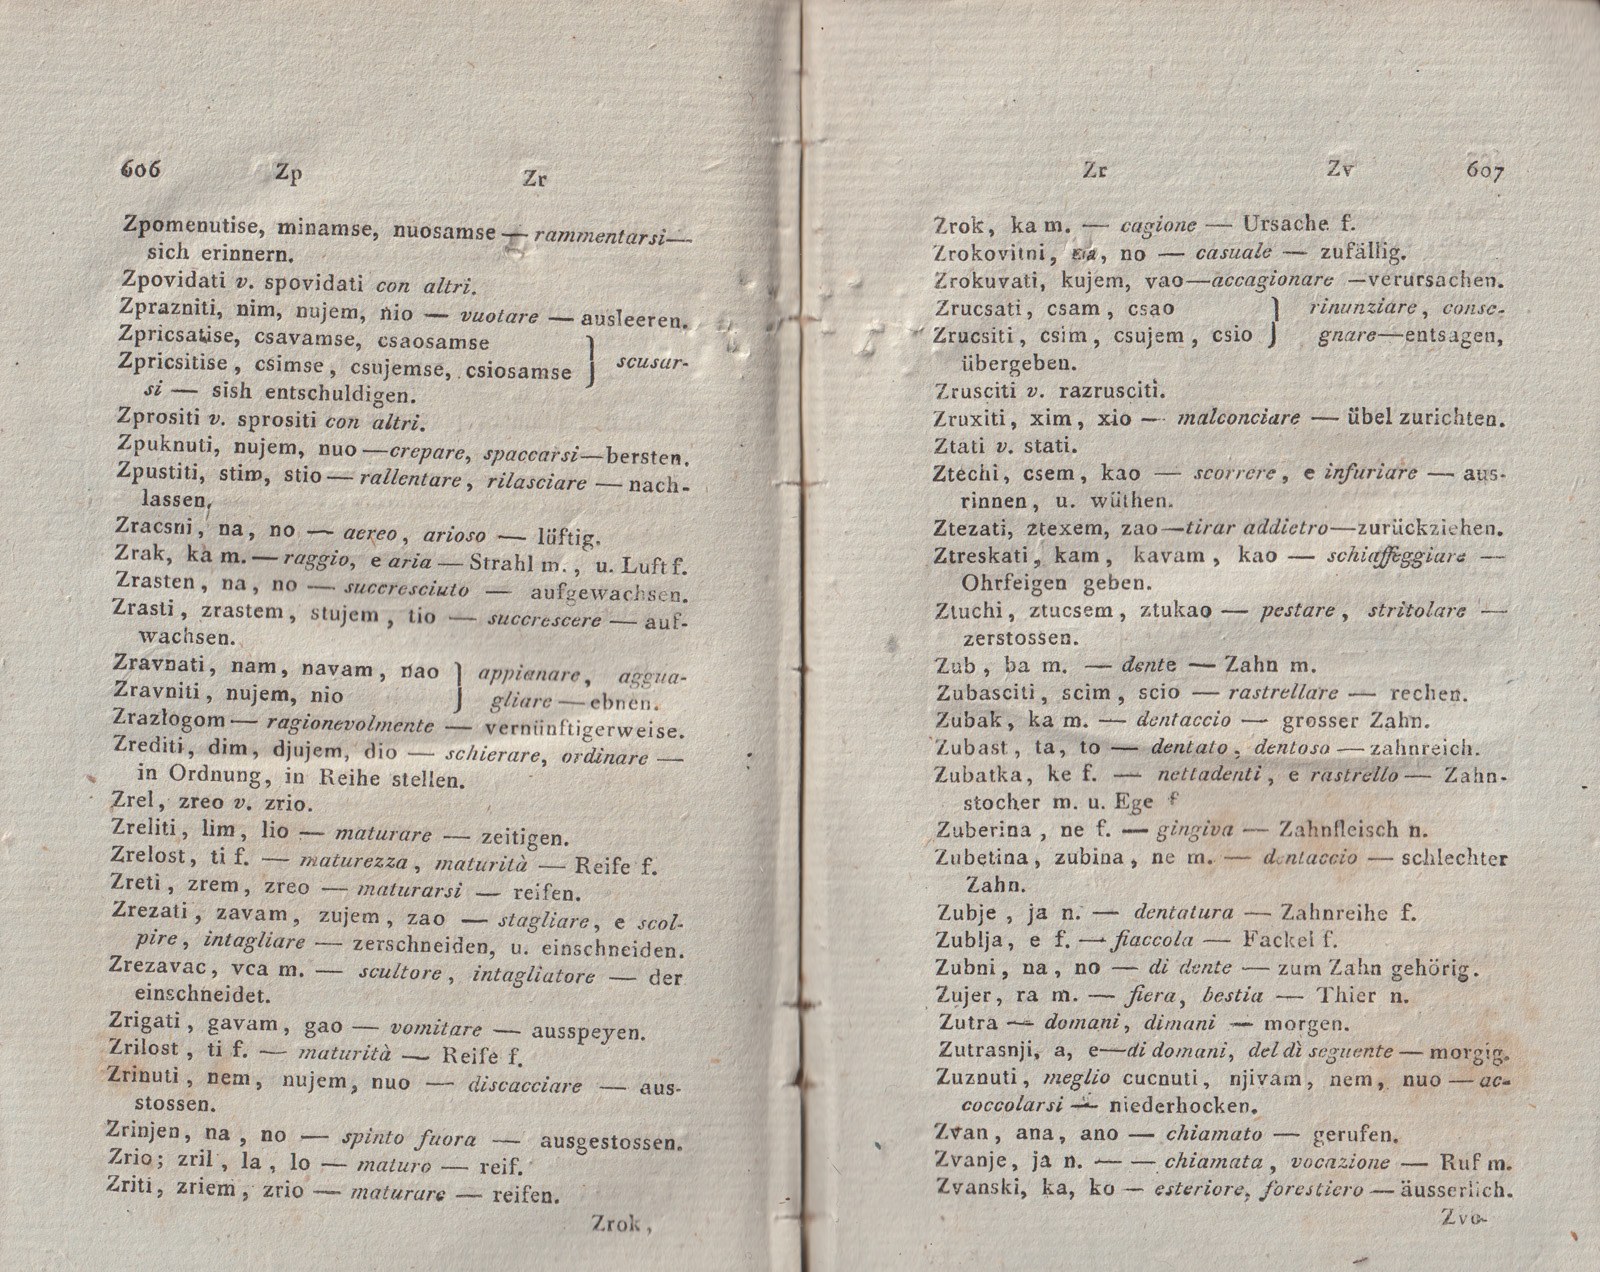 606 Zp Zr
Zpomenutise, minamse, nuosamse — rammentarsi—
sich erinnern.
Zpovidati v. spovidati con altri.
Zprazniti, nim, nujem, nio — vuotare — ausleeren.
Zpricsatise, csavamse, csaosamse
Zpricsitise, csimse, csujemse, csiosamse } scusar-
si — sish entschuldigen.
Zprositi v. sprositi con altri.
Zpuknuti, nujem, nuo —crepare, spaccarsi—bersten.
Zpustiti, stim, stio — rallentare, rilasciare — nach-
lassen,
Zracsni, na, no — aereo, arioso — lüftig.
Zrak, ka m. — raggio, e aria — Strahl m., u. Luft f.
Zrasten, na, no — succresciuto — aufgewachsen.
Zrasti, zrastem, stujem, tio — succrescere — auf-
wachsen.
Zravnati, nam, navam, nao } appianare, aggua-
Zravniti, nujem, nio } gliare — ebnen.
Zrazlogom — ragionevolmente — vernünftigerweise.
Zrediti, dim, djujem, dio — schierare, ordinare —
in Ordnung, in Reihe stellen.
Zrel, zreo v. zrio.
Zreliti, lim, lio — maturare — zeitigen.
Zrelost, ti f. — maturezza, maturità — Reife f.
Zreti, zrem, zreo — maturarsi — reifen.
Zrezati, zavam, zujem, zao — stagliare, e scol-
pire, intagliare — zerschneiden, u. einschneiden.
Zrezavac, vca m. — scultore, intagliatore — der
einschneidet.
Zrigati, gavam, gao — vomitare — ausspeyen.
Zrilost, ti f. — maturità — Reife f.
Zrinuti, nem, nujem, nuo — discacciare — aus-
stossen.
Zrinjen, na, no — spinto fuora — ausgestossen.
Zrio; zril, la, lo — maturo — reif.
Zriti, zriem, zrio — maturare — reifen.
Zrok,
Zr Zv 607
Zrok, ka m. — cagione — Ursache f.
Zrokovitni, no — casuale — zufällig.
Zrokuvati, kujem, vao—accagionare —verursachen.
Zrucsati, csam, csao } rinunziare, conse-
Zrucsiti, csim, csujem, csio } gnare—entsagen,
übergeben.
Zrusciti v. razrusciti.
Zruxiti, xim, xio — malconciare — übel zurichten.
Ztati v. stati.
Ztechi, csem, kao — scorrere, e infuriare — aus-
rinnen, u. wüthen.
Ztezati, ztexem, zao—tirar addietro—zurückziehen.
Ztreskati, kam, kavam, kao — schiaffeggiare —
Ohrfeigen geben.
Ztuchi, ztucsem, ztukao — pestare, stritolare —
zerstossen.
Zub, ba m. — dente — Zahn m.
Zubasciti, scim, scio — rastrellare — rechen.
Zubak, ka m. — dentaccio — grosser Zahn.
Zubast, ta, to — dentato, dentoso — zahnreich.
Zubatka, ke f. — nettadenti, e rastrello — Zahn-
stocher m. u. Ege f
Zuberina, ne f. — gingiva — Zahnfleisch n.
Zubetina, zubina, ne m. — dentaccio — schlechter
Zahn.
Zubje, ja n. — dentatura — Zahnreihe f.
Zublja, e f. — fiaccola — Fackel f.
Zubni, na, no — di dente — zum Zahn gehörig.
Zujer, ra m. — fiera, bestia — Thier n.
Zutra — domani, dimani — morgen.
Zutrasnji, a, e—di domani, del dì seguente — morgig.
Zuznuti, meglio cucnuti, njivam, nem, nuo — ac-
coccolarsi — niederhocken.
Zvan, ana, ano — chiamato — gerufen.
Zvanje, ja n. — — chiamata, vocazione — Ruf m.
Zvanski, ka, ko — esteriore, forestiero — äusserlich.
Zvo-